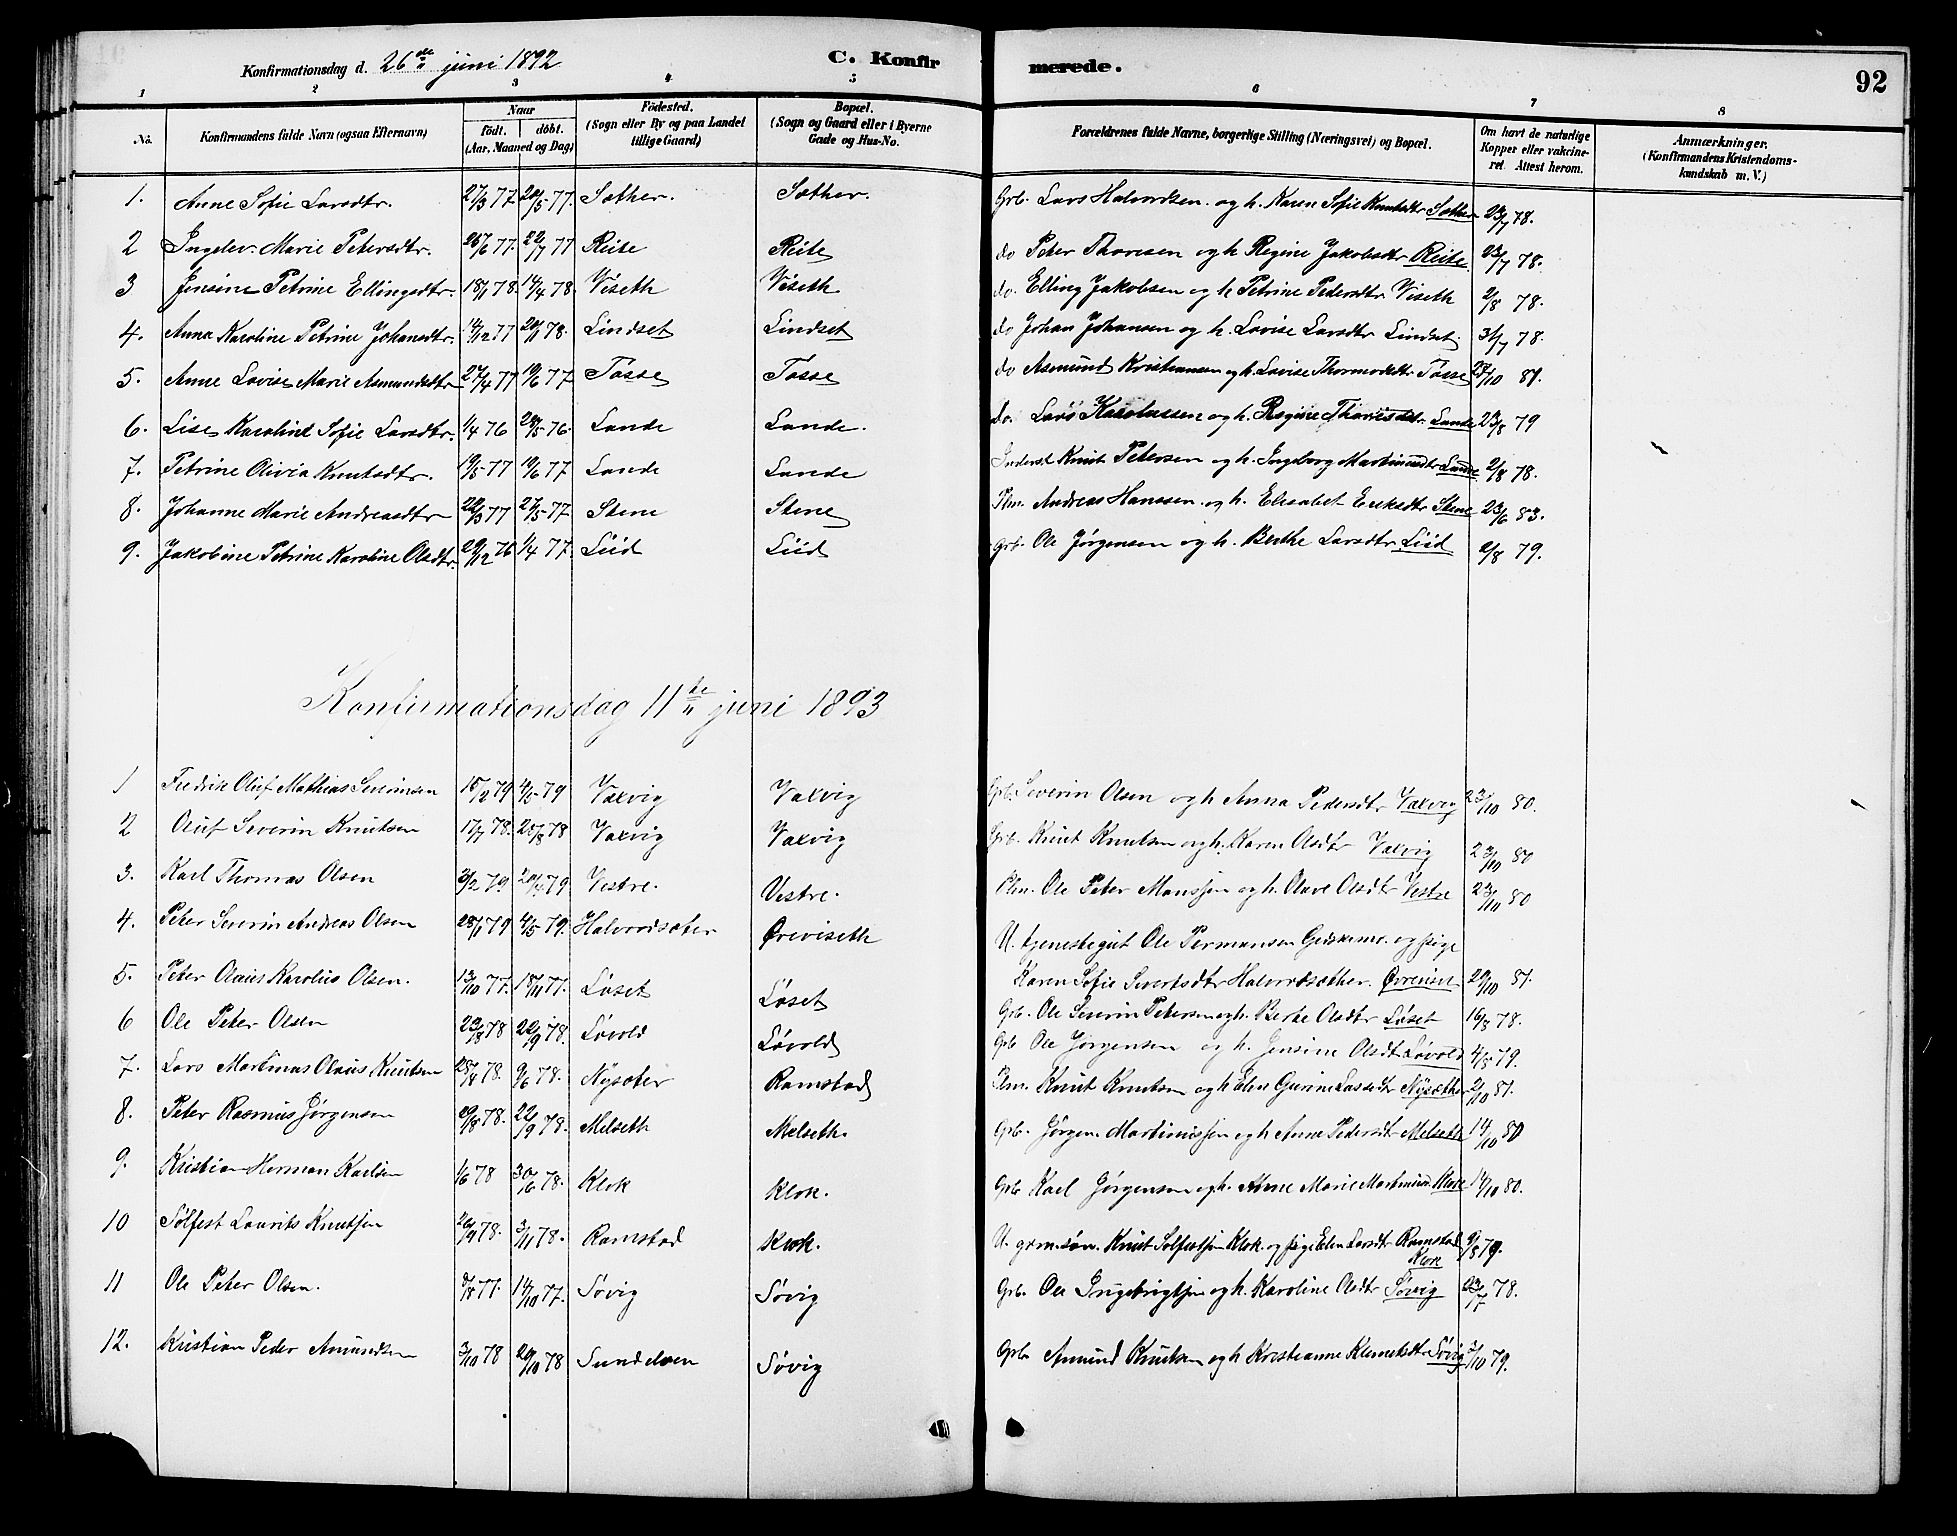 Konfirmationsdag d. 26de juni 1892 C. Konfirmerede. 92
1 2 3 4 5 6 7 8
No. Konfirmandens fulde Navn (ogsaa Efternavn) Naar födt. döbt. (Aar, Maaned og Dag) Födested. (Sogn eller By og paa Landet tillige Gaard) Bopæl. (Sogn og Gaard eller i Byerne Gade og Hus-No. Forældrenes fulde Navne, borgerlige Stilling (Næringsvei) og Bopæl. Om havt de naturlige Kopper eller vakcineret Attest herom. Anmærkninger. (Konfirmandens Kristendomskundskab m. V.)
1. Anne Sofie Larsdtr. 27/3 77. 20/5 77. Sæther. Sæther. Grb. Lars Halvordsen og h. Karen Sofie Knutsdtr Sæther 23/7 78.
2 Ingelev Marie Petersdtr. 26/6 77. 22/7 77 Reite Reite do Peter Thoresen og h Regine Jakobsdtr Reite 23/7 78.
3 Jensine Petrine Ellingsdtr. 18/1 78. 14/4 78. Viseth Viseth do. Elling Jakobsen og h Petrine Pedersdtr Viseth 2/8 78.
4. Anna Karoline Petrine Johansdtr. 14/12 77 20/1 78. Lindset Lindset do Johan Johansen og h. Lovise Larsdtr Lindset. 31/7 78.
5. Anne Lovise Marie Asmundsdtr 27/4 77 10/6 77. Tosse Tosse do Asmund Kristiansen og h. Lovise Thormodsdtr Tosse 27/10 81.
6. Lise Karoline Sofie Larsdtr. 1/4 76 28/5 76. Lande Lande. do. Lars Karolussen og h. Regine Thoresdtr. Lande 23/8 79
7. Petrine Olivia Knutsdtr. 19/5 77 10/6 77 Lande Lande Inderst Knut Petersen og h. Ingeborg Martinusdtr Lande 2/8 78.
8. Johanne Marie Andreasdtr 22/3 77 27/5 77. Stene Stene Plm. Andreas Hanssen og h. Elisabet Eriksdtr Stene 23/6 83.
9. Jakobine Petrine Karoline Olsdtr. 29/12 76 1/4 77. Liid Liid Grb. Ole Jørgensen og h. Berthe Larsdtr Liid 2/8 79.
Konfirmationsdag 11te juni 1893
1 Fredrik Oluf Mathias Severinsen 15/2 79 4/5 79 Vaxvig Vaxvig Grb. Severin Olsen og h Anna Pedersdtr Vaxvig 23/10 80.
2 Oluf Severin Knutsen 17/7 78. 25/8 78 Vaxvig Vaxvig Grb. Knut Knutsen og h. Karen Olsdtr Vaxvig 23/10 80
3. Karl Thomas Olsen 3/2 79. 20/4 79 Vestre. Vestre. Plm. Ole Peter Monssen og h. Olave Olsdtr Vestre 23/11 80
4. Peter Severin Andreas Olsen 28/1 79 4/5 79. Halvordsæter Øreviseth U. tjenestegut Ole Permansen Gidskemo. og pige
Karen Sofie Sivertsdtr Halvordsæther. Øvreviset 29/10 81.
5. Peter Olaus Karolus Olsen. 13/10 77. 18/11 77. Løset Løset Grb. Ole Severin Petersen og h. Berte Olsdtr Løset 16/8 78.
6 Ole Peter Olsen 23/8 78 22/9 78. Løvold Løvold Grb Ole Jørgensen og h. Jensine Olsdtr Løvold 4/5 79.
7. Lars Martinus Olaus Knutsen 25/4 78. 9/6 78. Nysæter Ramstad Plm. Knut Knutsen og h Elen Gurine Lassedtr Nysæther 2/10 81.
8. Peter Rasmus Jørgensen 29/8 78. 22/9 78. Melseth Melseth. Grb. Jørgen Martinussen og h Anne Pedersdtr Melseth 14/10 80
9. Kristian Herman Karlsen 1/6 78 30/6 78. Klok Klok. Grb Karl Jørgensen og h. Anne Marie Martinusd Klok 14/10 80.
10 Sølfest Laurits Knutsen 26/9 78. 3/11 78. Ramstad Klok. U. grmsøn. Knut Solfestsen Klok. og pige Elen Larsdtr Ramstad 9/8 79.
Klok
11 Ole Peter Olsen. 9/8 77. 14/10 77. Søvig Søvig Grb. Ole Ingebrigtsen og h. Karoline Olsdtr Søvig 23/7 78.
12. Kristian Peder Amundsen 3/10 78 20/10 78 Sundelven Søvig Grb Amund Knutsen og h Kristianne Klemetsdtr Søvig 3/10 79.